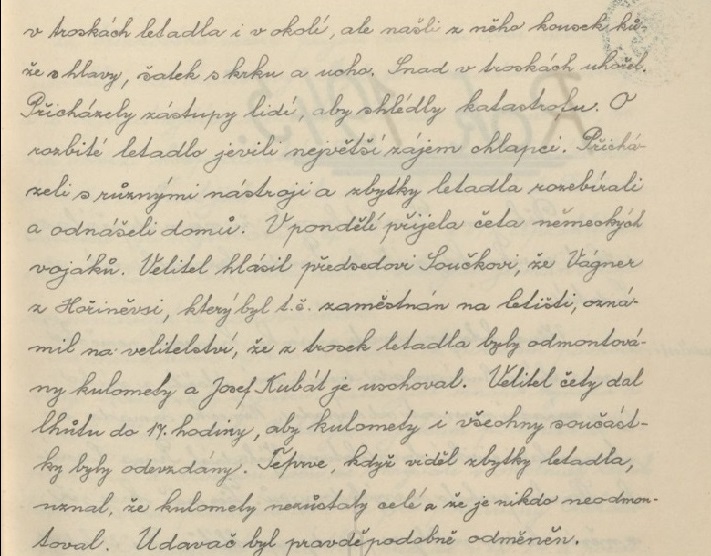 v troskách letadla i v okolí, ale našli z něho kousek ků-
že s hlavy, šatek s krku a ucho. Snad v troskách uhořel.
Přicházely zástupy lidí, aby shlédly katastrofu. O
rozbité letadlo jevili největší zájem chlapci. Přichá-
zeli s různými nástroji a zbytky letadla rozebírali
a odnášeli domů. V pondělí přijela četa německých
vojáků. Velitel hlásil předsedovi Součkovi, že Vágner
z Hořiněvsi, který byl t.č. zaměstnán na letišti, ozná-
mil na velitelství, že z trosek letadla byly odmontová-
ny kulomety a Josef Kubát je uschoval. Velitel čety dal
lhůtu do 17. hodiny, aby kulomety i všechny součást-
ky byly odevzdány. Teprve, když viděl zbytky letadla,
uznal, že kulomety nezůstaly celé a že je nikdo neodmon-
toval. Udavač byl pravděpodobně odměněn.